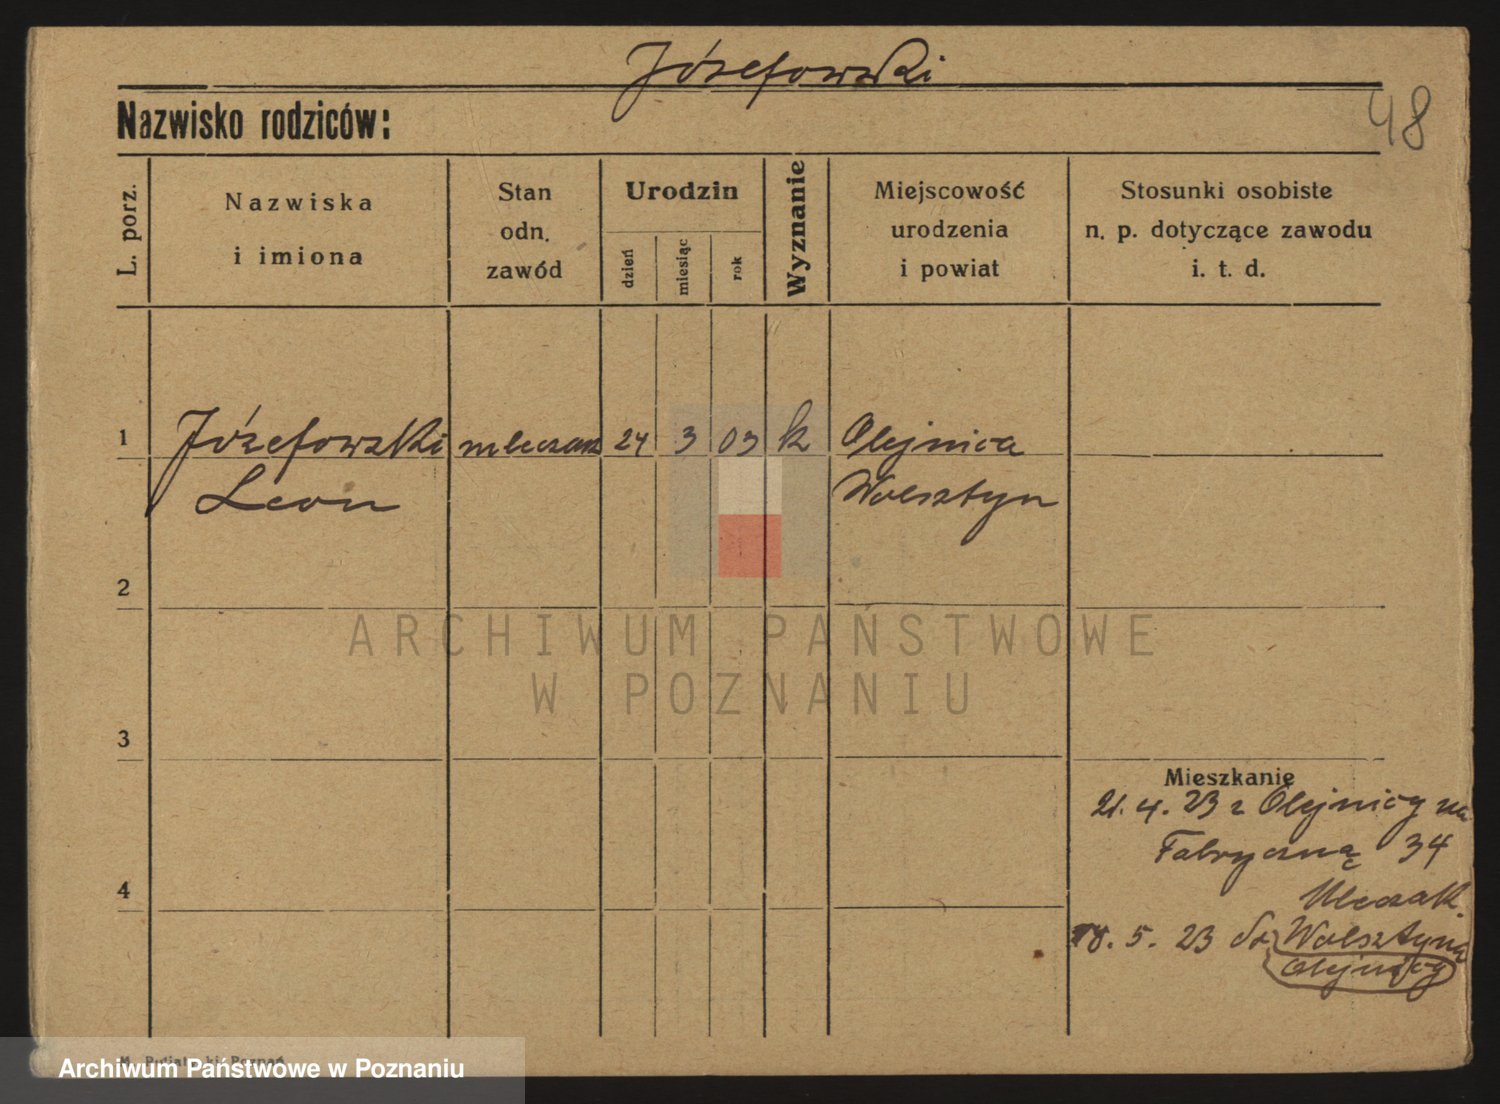 Józefowski
48
Nazwisko rodziców:
L. porz.
Nazwiska
i imiona
Stan
odn.
zawód
Urodzin
dzień
miesiąc
rok
Wyznanie
Miejscowość
urodzenia
i powiat
Stosunki osobiste
n. p. dotyczące zawodu
i. t. d.
1
Józefowski mleczarz 24 3 03 k Olejnica
Leon Wolsztyn
2
ARCHIWUM PAŃSTWOWE
W POZNANIU
3
Mieszkanie
21. 4. 23 z Olejnicy na
Fabryczną 34
4
18. 5. 23 do Wolsztyna
Olejnicy
Poznań
Archiwum Państwowe w Poznaniu